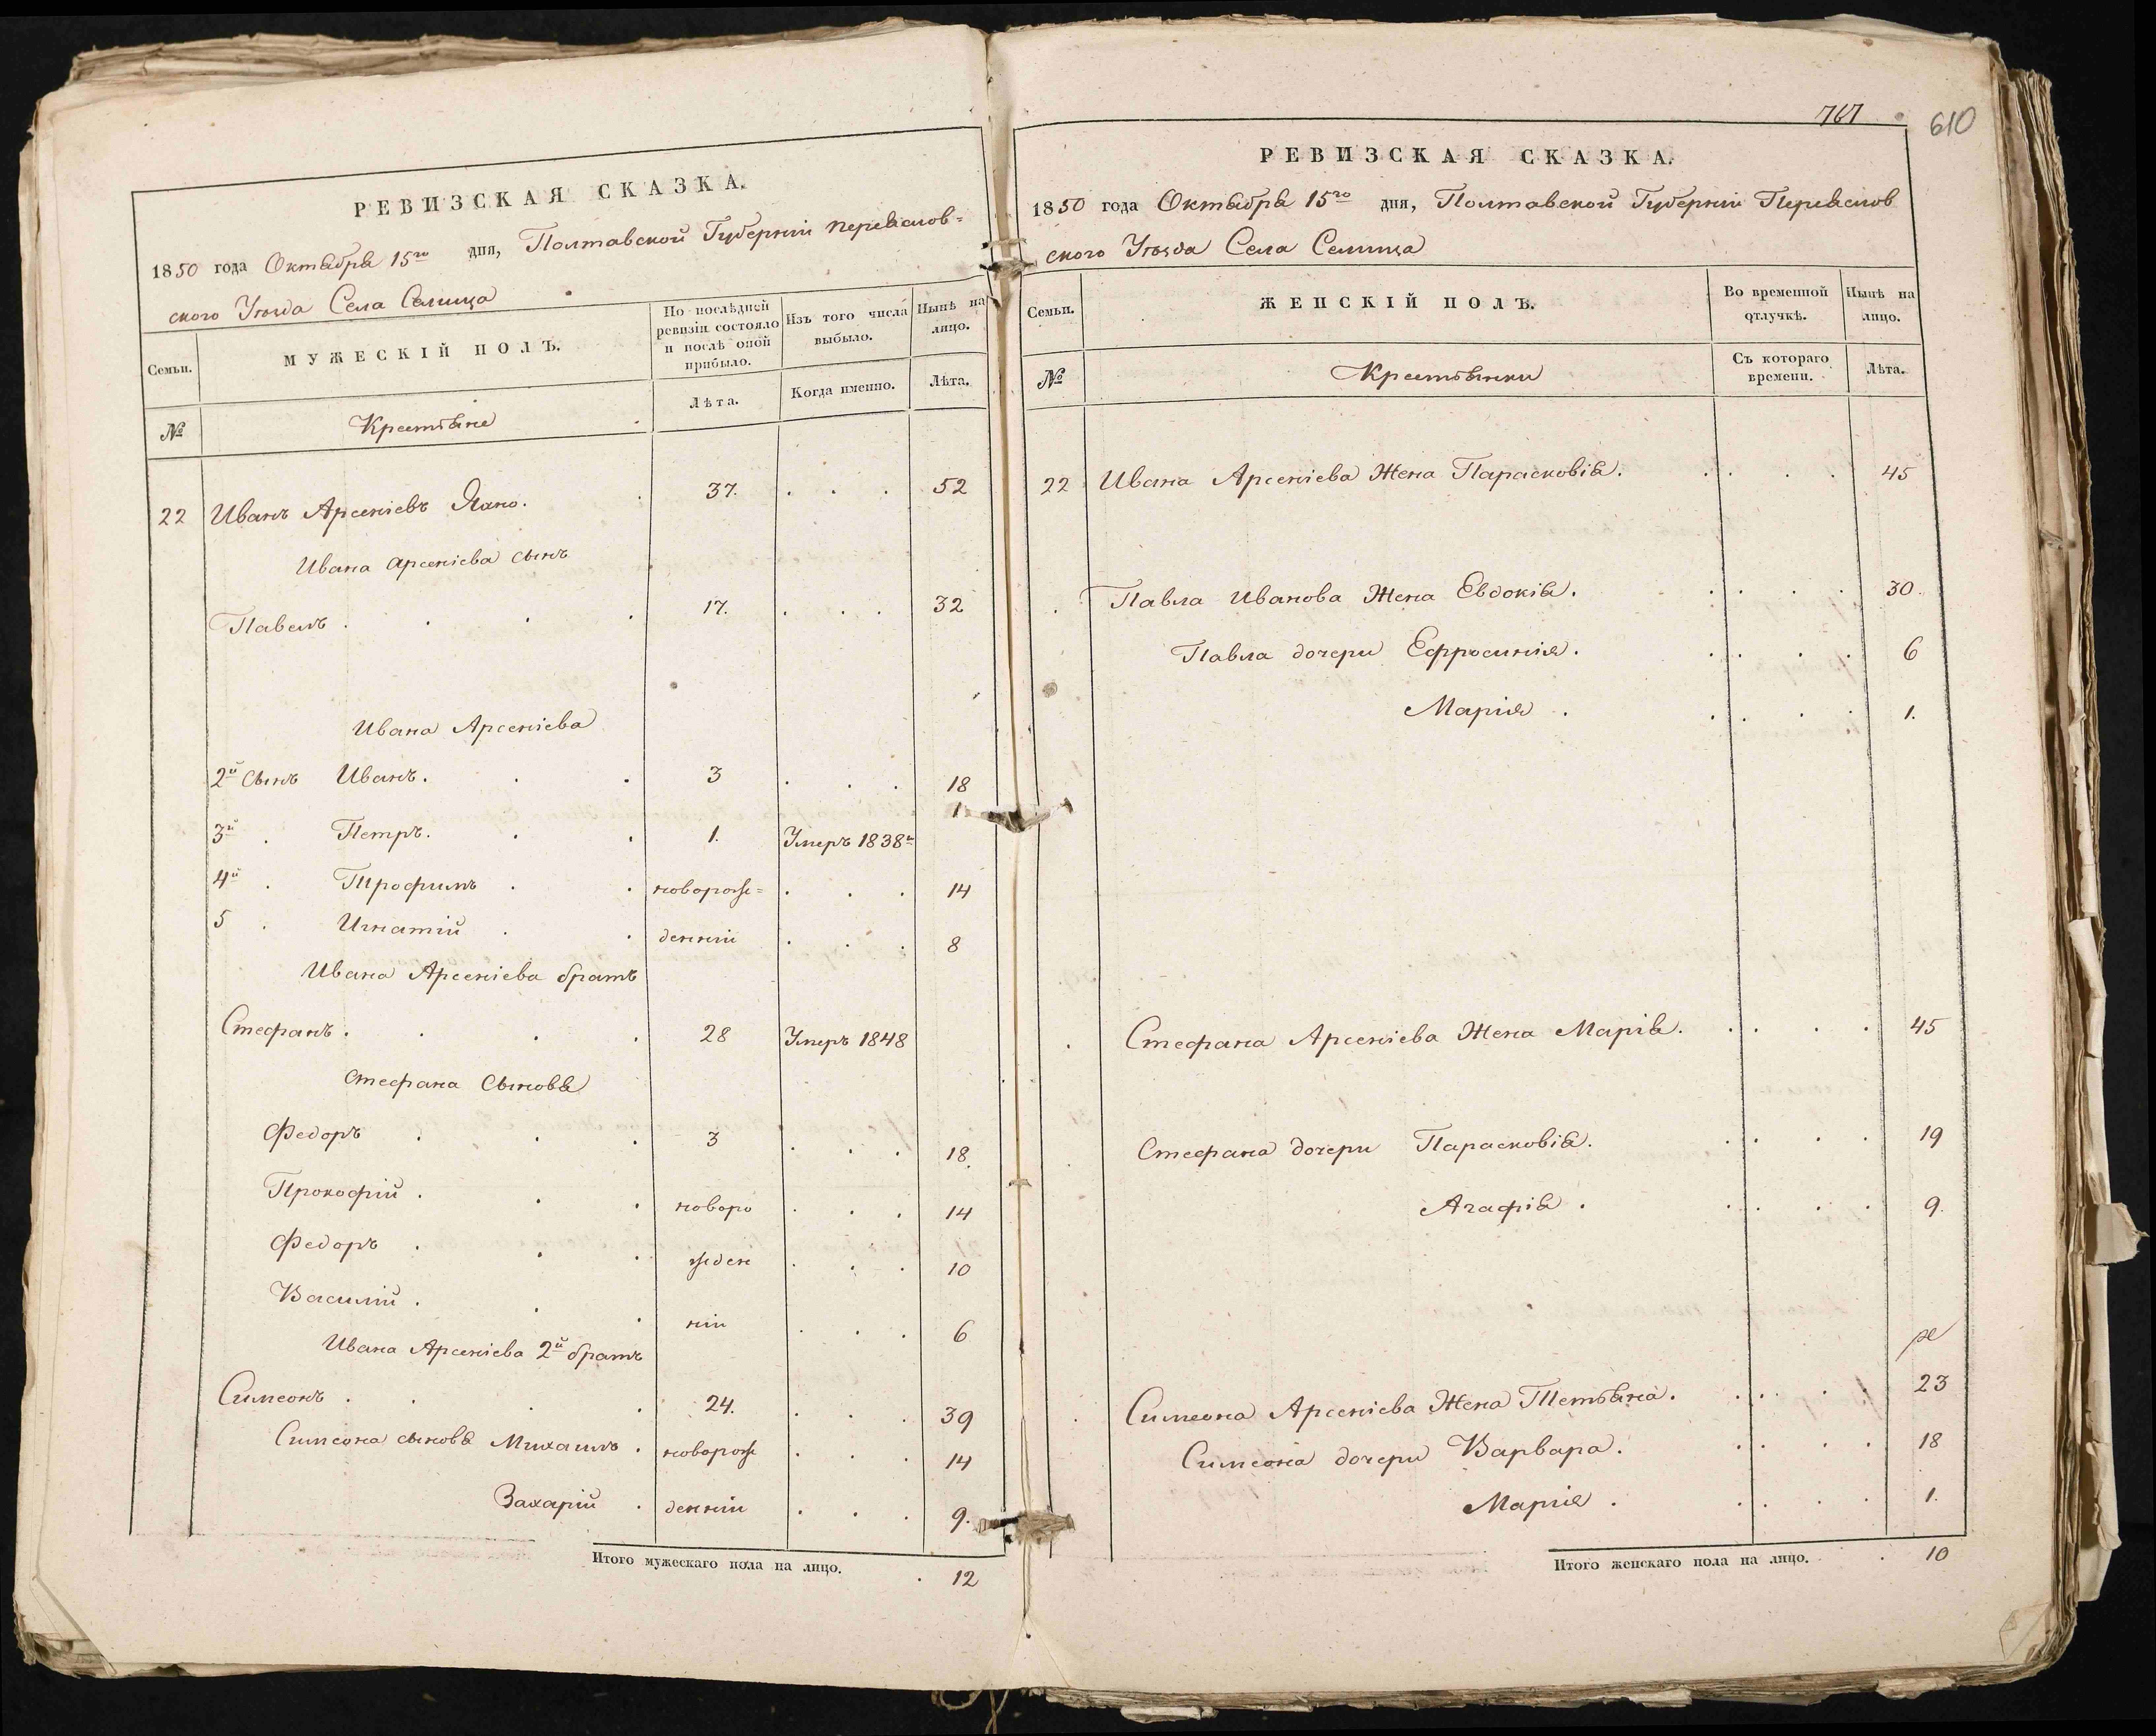 РЕВИЗСКАЯ СКАЗКА.
1850 года Октября 15го дня, Полтавской Губерніи Переяслов=
ского Уѣзда Села Селища
Семьи.
МУЖЕСКІЙ ПОЛЪ.
По послѣдней ревизіи состояло и послѣ оной прибыло.
Изъ того числа выбыло.
Нынѣ на лицо.
№
Крестьяне
Лѣта.
Когда именно.
Лѣта.
22 Иванъ Арсеніевъ 37. 52
Ивана Арсеніева сынъ
Павелъ 17. 32
Ивана Арсеніева
2й сынъ Иванъ. 3 18
1
3й Петръ. 1. Умеръ 1838г
4й Трофимъ новорож= 14
5 Игнатій денніи 8
Ивана Арсеніева братъ
Стефанъ. 28 Умеръ 1848
Стефана Сыновья
Федоръ 3 18.
Прокофій. новоро 14
Федоръ жден 10
Василій. ніи 6
Ивана Арсеніева 2й братъ
Симеонъ 24. 39
Симеона сыновья Михаилъ новорож 14
Захарій денніи 9.
Итого мужескаго пола на лицо. 12
767
610
РЕВИЗСКАЯ СКАЗКА.
1850 года Октября 15го дня, Полтавской Губерніи Переяслов
ского Уѣзда Села Селища
Семьи.
ЖЕНСКІЙ ПОЛЪ.
Во временной отлучкѣ.
Нынѣ на лицо.
№
Крестьянки
Съ котораго времени.
Лѣта.
22 Ивана Арсеніева Жена Парасковія. 45
Павла Иванова Жена Евдокія. 30.
Павла дочери Ефросинія. 6
Марія 1.
Стефана Арсеніева Жена Марія. 45
Стефана дочери Парасковія. 19
Агафія. 9.
Симеона Арсеніева Жена Тетьяна. 23
Симеона дочери Варвара. 18
Марія. 1.
Итого женскаго пола на лицо. 10